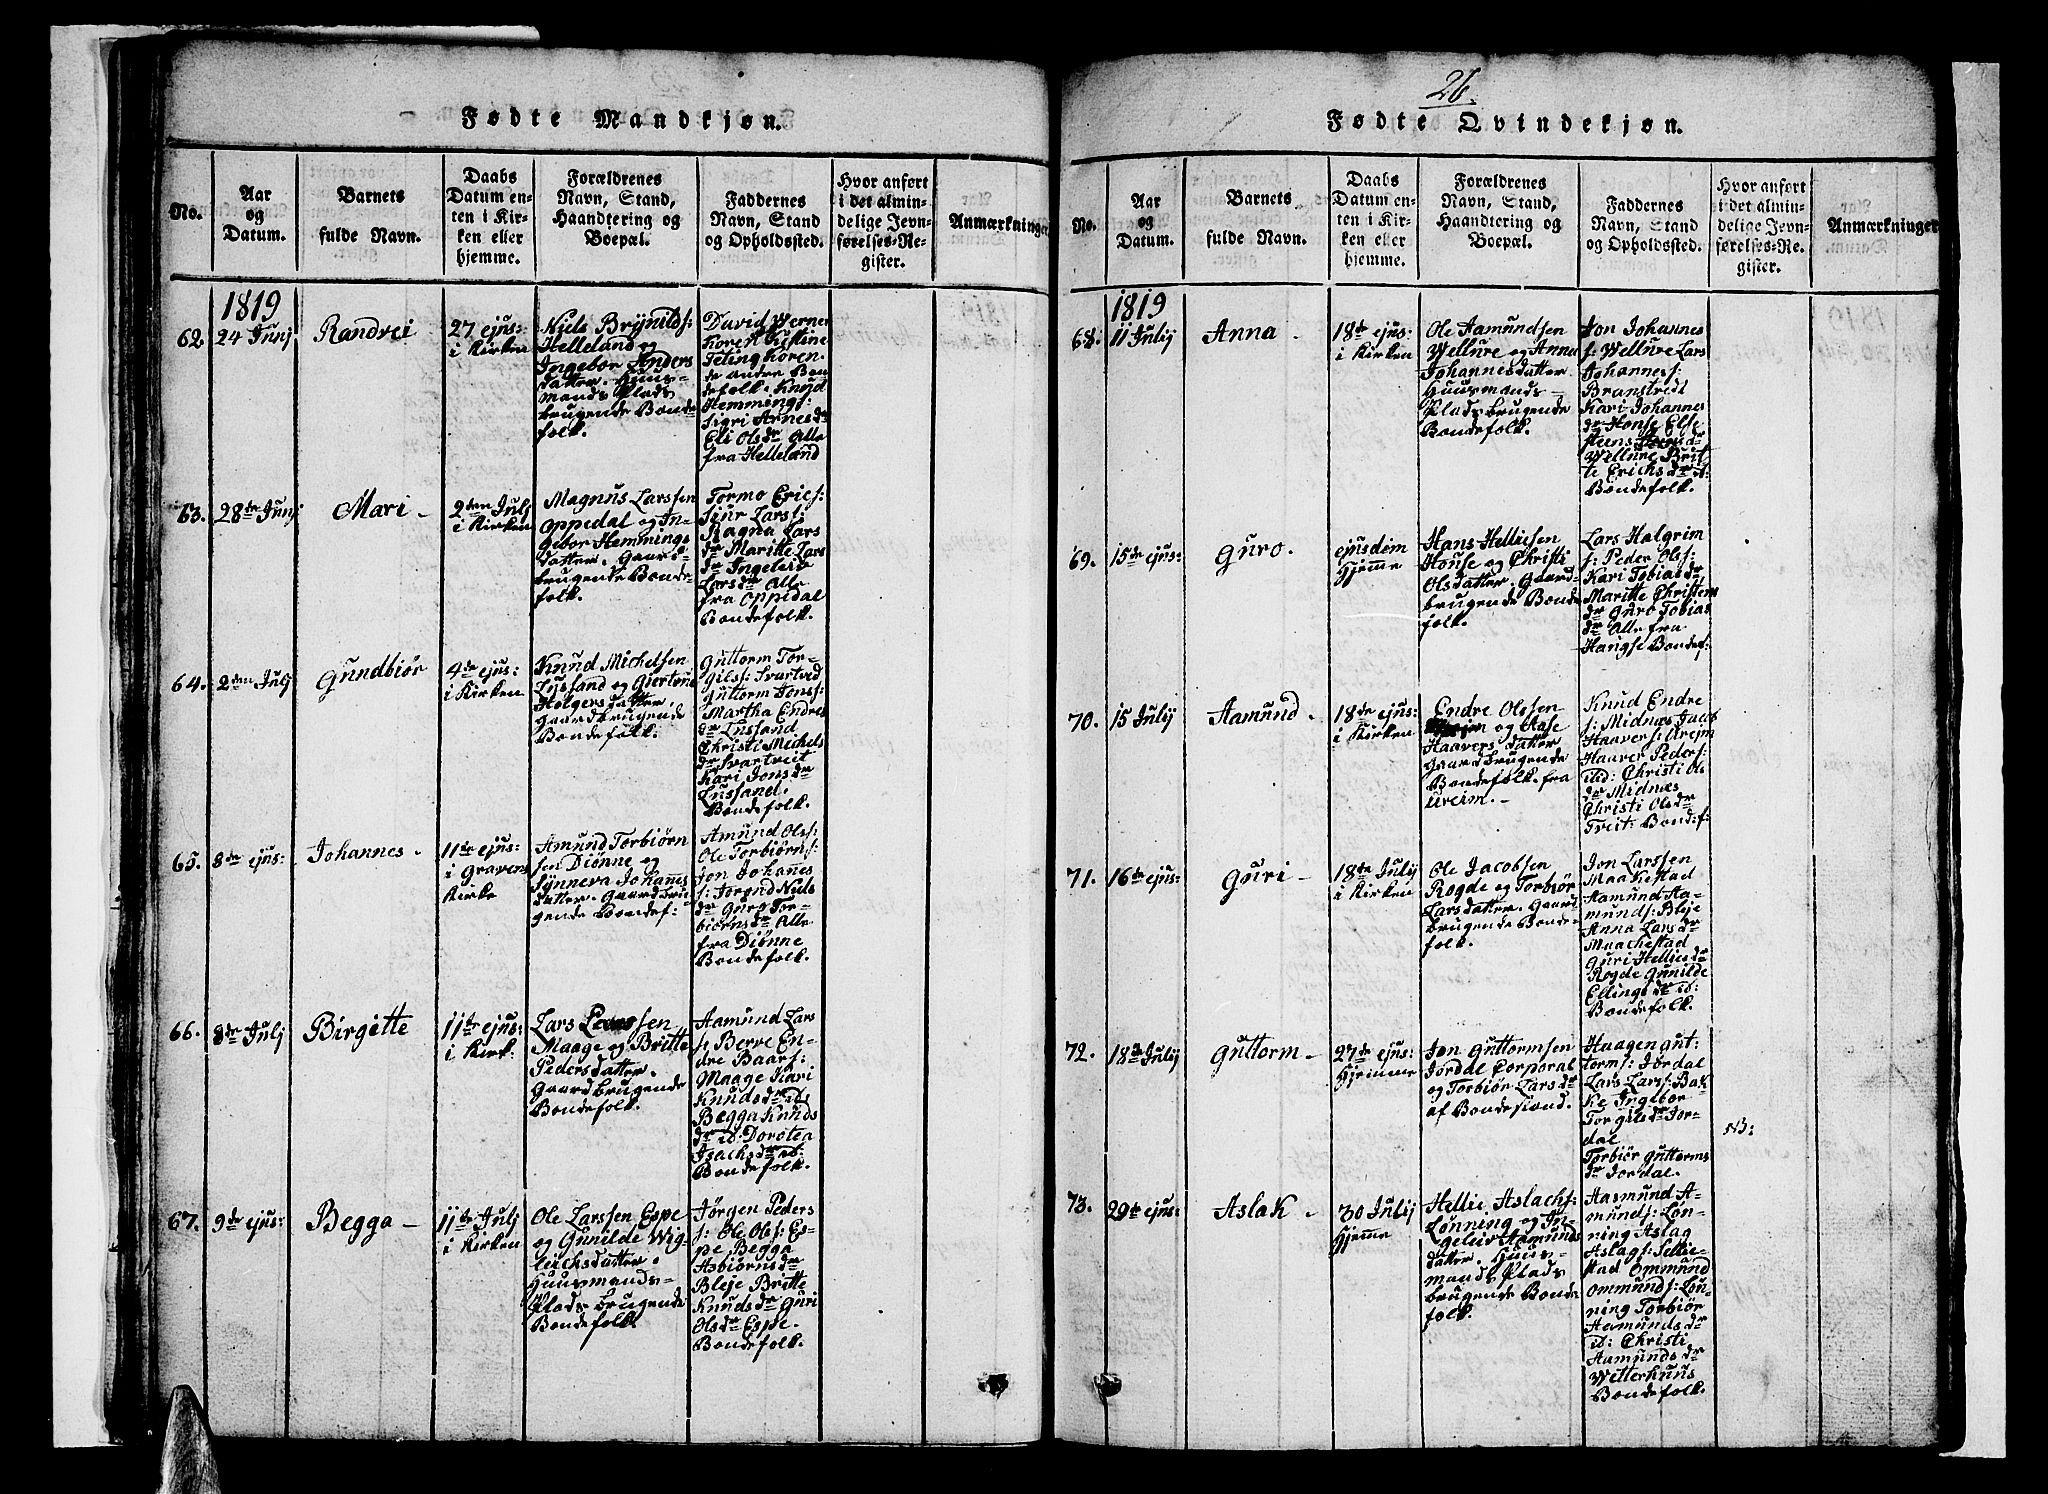 Fødte Mandkjøn.
No.
Aar
og
Datum.
Barnets
fulde Navn.
Daabs
Datum en-
ten i Kir-
ken eller
hjemme.
Forældrenes
Navn, Stand,
Haandtering og
Boepæl.
Faddernes
Navn, Stand
og Opholdssted.
Hvor anført
i det almin-
delige Jevn-
førelses-Re-
gister.
Anmærkninger
1819
62.
24 Junj
Randvei
27 ejus:
i Kirken
Niels Brynilds:
Helleland og
Ingebor Enders
datter. Huus-
mands Plads
brugende Bonde
folk.
David Werner
Koren Kistine
Teling Koren.
de andre Bon
defolk. Knud
Hemmings:
Sigri Arnes dr
Eli Ols dr Alle
fra Helleland
63.
28de Junj
Mari -
2den Julj
i Kirken
Magnus Larssen
Oppedal og In-
gebor Hemmings
datter. Gaard-
brugende Bonde-
folk.
Tormo Erics:
Siur Lars:
Ragna Lars
dr Maritte Lars
dr Ingeleiv
Lars dr Alle
fra Oppedal
Bondefolk.
64.
2den Julj
Gundbiör
4de ejus:
i Kirken
Knud Michelsen
Lussand og Giertrud
Holgers datter
gaardbrugende
Bondefolk.
Guttorm Tor-
gils: Svartvid
Guttorm Jons:
Martha Endres
dr Lussand
Christi Michels
dr Svartveit
Kari Jons dr
Lussand.
Bondefolk.
65.
8de ejus:
Johannes -
11de ejus:
i Gravens
Kirke
Amund Torbiörn
sen Diönne og
Synneva Johannes
datter. Gaardbru-
gende Bondef:
Amund Ols:
Ole Torbiörns:
Jon Johannes
s: Torond Niels
dr Guro Tor-
biörns dr Alle
fra Diönne
Bondefolk.
66.
8de Julj
Birgitte
11de ejus:
i Kirk:
Lars Larssen
Maage og Britte
Pedersdatter.
Gaardbrugende
Bondefolk.
Aamund Lars
s: Berve En-
dre Baars:
Maage Kari
Knuds dr ibd:
Begga Knuds
dr id: Dorotea
Isachs dr ib:
Bondefolk.
67.
9de ejus:
Begga -
11de Julj
i Kirken
Ole Larssen Espe
og Gunilde Wig-
leichsdatter.
Huusmands-
Plads brugende
Bondefolk.
Jörgen Peders
s: Ole Ols: Es-
pe Begga
Asbiörns dr
Bleje Britte
Knuds dr Guri
Ols dr Espe.
Bondefolk.
26.
Fødte Qvindekjøn.
No.
Aar
og
Datum.
Barnets
fulde Navn.
Daabs
Datum en-
ten i Kir-
ken eller
hjemme.
Forældrenes
Navn, Stand,
Haandtering og
Boepæl.
Faddernes
Navn, Stand
og Opholdssted.
Hvor anført
i det almin-
delige Jevn-
førelses-Re-
gister.
Anmærkninger
1819
68.
11 Julij
Anna -
18de ejus:
i Kirken
Ole Aamundsen
Wellure og Anna
Johannesdatter.
Huusmands-
Plads brugende
Bondefolk.
Jon Johannes
s: Wellure Lars
Johannes:
Branstvedt
Kari Johannes
dr Honse Else
Steens dr
Wellure Brit-
te Erichs dr id:
Bondefolk.
69.
15de ejus:
Guro.
ejusdem
Hjemme
Hans Helliesen
Honse og Christi
Olsdatter. Gaard-
brugende Bonde
folk.
Lars Halgrim
s: Peder Ols:
Kari Tobias dr
Maritte Christens
dr Guro Tobias
dr Alle fra
Haugse Bondef:
70.
15 Julij
Aamund -
18de ejus:
i Kirken
Endre Olssen
og Aase
Haavers datter
Gaardbrugende
Bondefolk. fra
Ureim. -
Knud Endre
s: Midnæs Jacob
Haavers: Ureim
Haaver Peders:
ibid: Christi Ols
dr Midnæs
Christi Ols dr
Treit: Bond:f:
71.
16de ejus:
Guri -
18de Julij
i Kirken
Ole Jacobsen
Rogde og Torbiör
Lars datter. Gaard
brugende Bonde-
folk.
Jon Larssen
Maakestad
Aamund Aa-
munds: Bleje
Anna Lars dr
Maachestad
Guri Hellies dr
Rogde Gunilde
Ellings dr id:
Bondefolk.
72.
18de Julij
Guttorm -
27de ejus:
Hjemme
Jon Guttormsen
Jordal Corporal
og Torbiör Lars dr
af Bondestand.
Haagen Gut-
torms: Jordal
Lars Lars: Bak
ke Ingebor
Torgils dr Jor-
dal
Torbiör Guttorms
dr Jordal.
NB:
73.
29de ejus:
Aslak -
30 Julij
Hjemme
Hellie Aslachs:
Lønning og In-
geleiv Aamunds
datter. Huus-
mands Plads
brugende Bonde
folk.
Aasmund A-
munds: Løn-
ning Aslag
Aslags: Sellie-
stad Ommund
Ommunds: Løn-
ning Torbiör
Aamunds dr
id: Christi
Aamunds dr
Wetterhuus
Bondefolk.